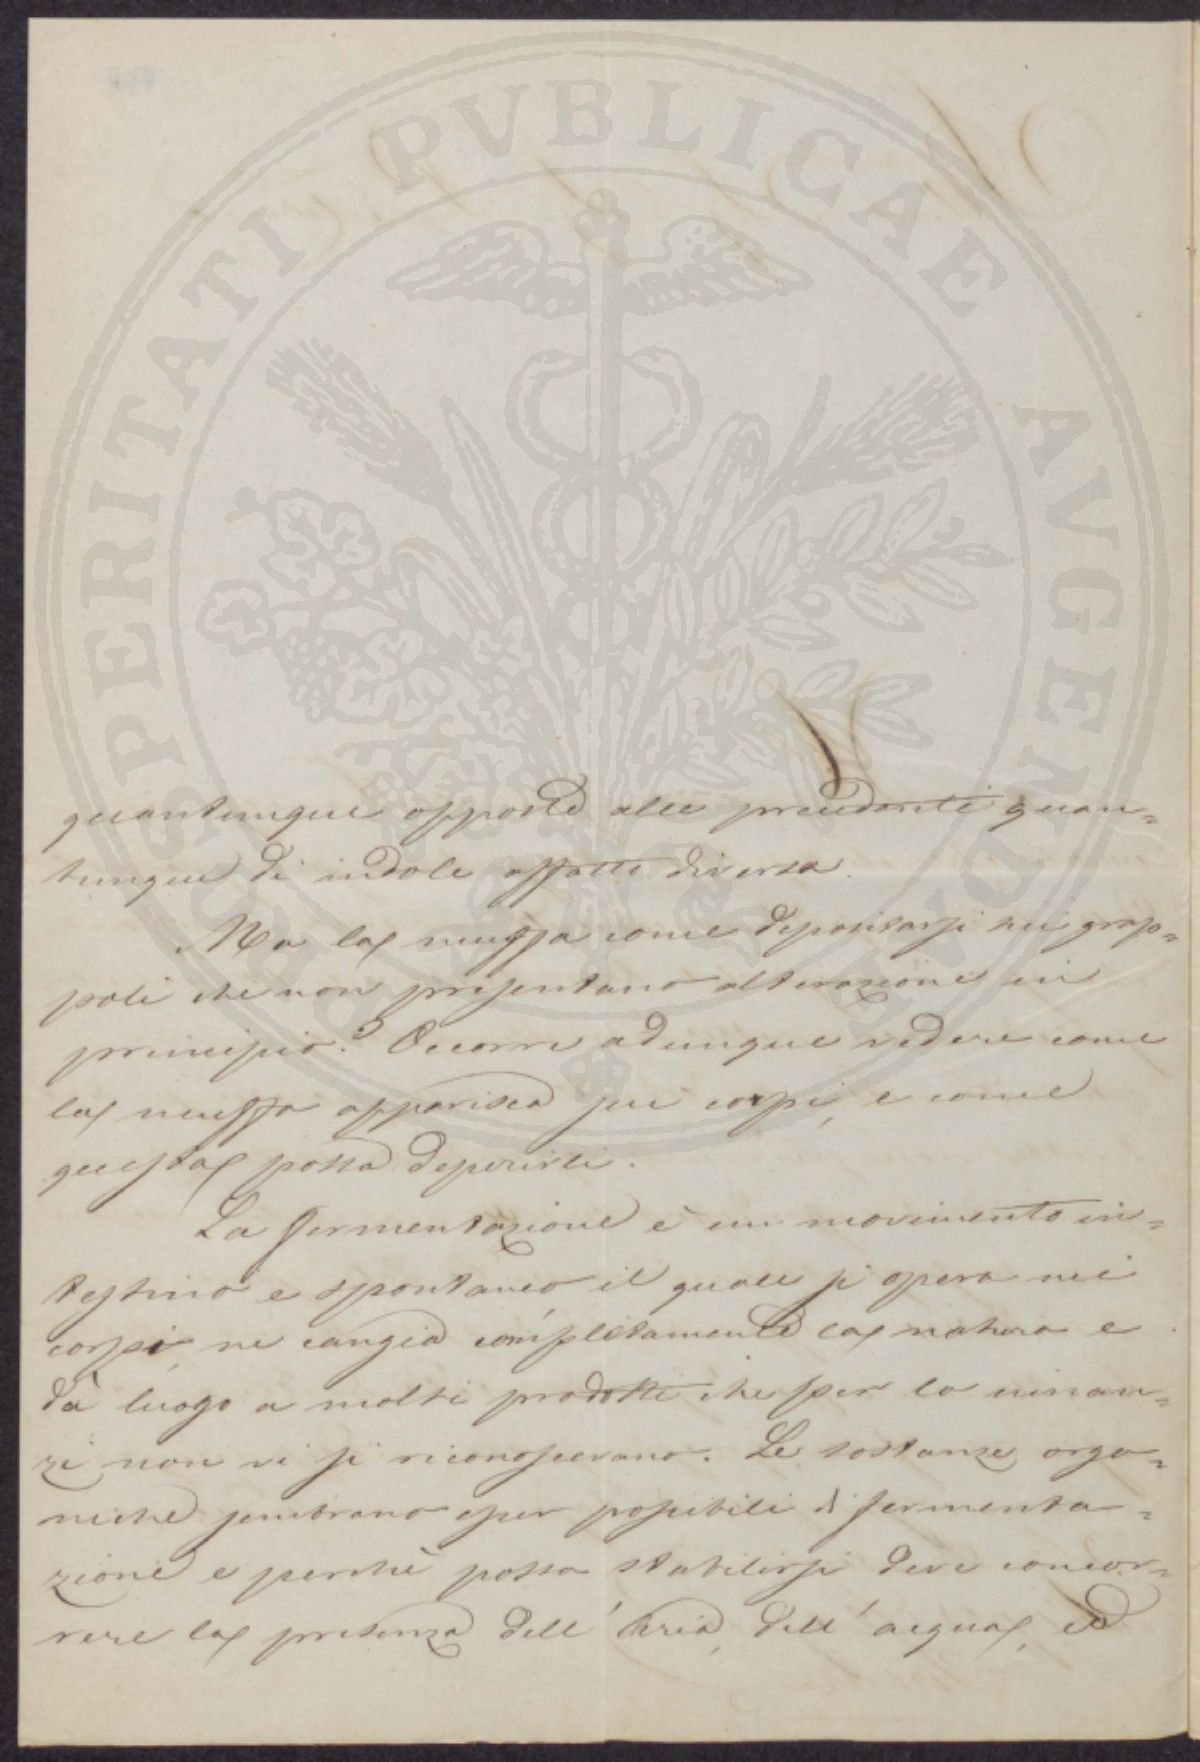 PROSPERITATI PVBLICAE AVGENDAE
quantunque opposte alle precedenti quan=
tunque di indole affatto diversa.
Ma la muffa come depositarsi sui grap=
poli che non presentano alterazione in
principio? Occorre adunque vedere come
la muffa apparisca sui corpi, e come
questa possa deperirli.
La fermentazione è un movimento in=
testino e spontaneo il quale si opera nei
corpi, ne cangia completamente la natura e
dà luogo a molti prodotti che per lo innan=
zi non vi si riconoscevano. Le sostanze orga=
niche sembrano esser possibili di fermenta=
zione e perchè possa stabilirsi deve concor=
rere la presenza dell'aria, dell'acqua, ed